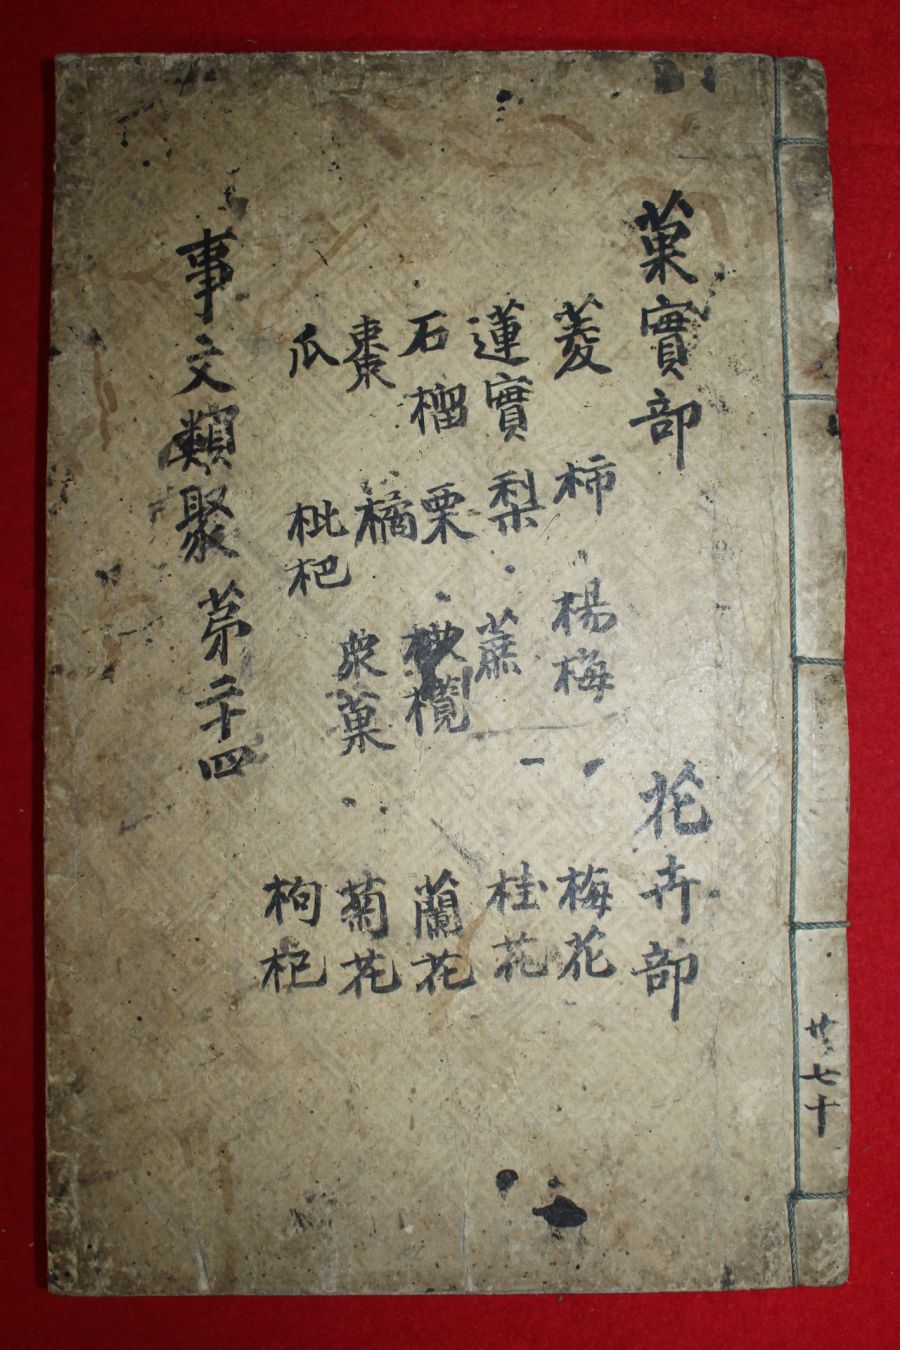 共七十
菓實部 花卉部
菱 柿 楊梅 梅花
蓮實 梨 蔗 桂花
石榴 栗 欖 蘭花
棗 橘 衆菓 菊花
瓜 枇杷 枸杞
事文類聚 苐二十四